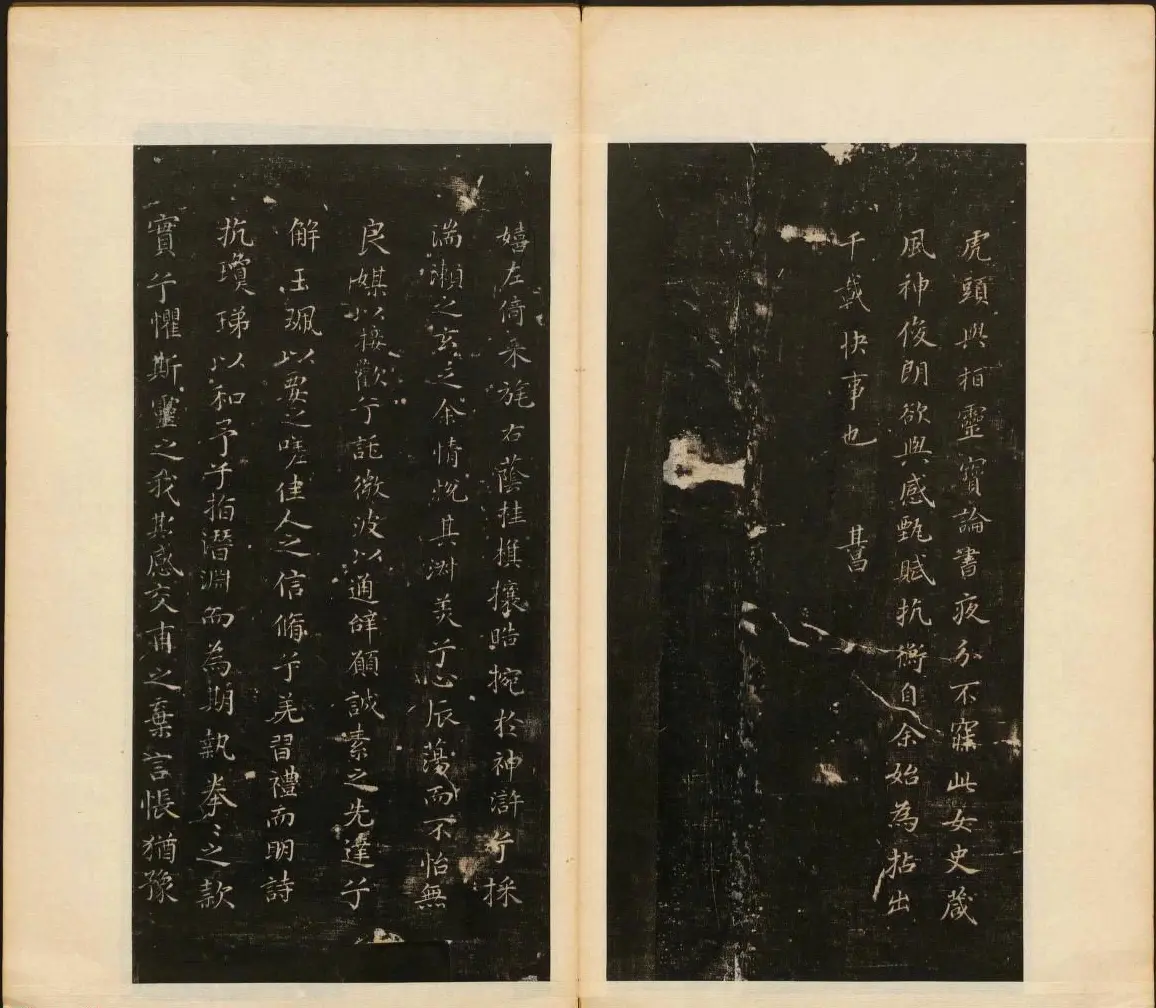 虎頭與桓靈寶論書夜分不寐此女史箴
風神俊朗欲與感甄賦抗衡自余始為拈出
千載快事也 其昌
嬉左倚采旄右蔭桂旗攘皓捥於神滸兮採
湍瀨之玄芝余情悅其淑美兮心辰蕩而不怡無
良媒以接歡兮託微波以通辭願誠素之先達兮
解玉珮以要之嗟佳人之信脩兮羌習禮而明詩
抗瓊珶以和予兮指潛淵而為期執拳〻之款
實兮懼斯靈之我欺感交甫之棄言悵猶豫